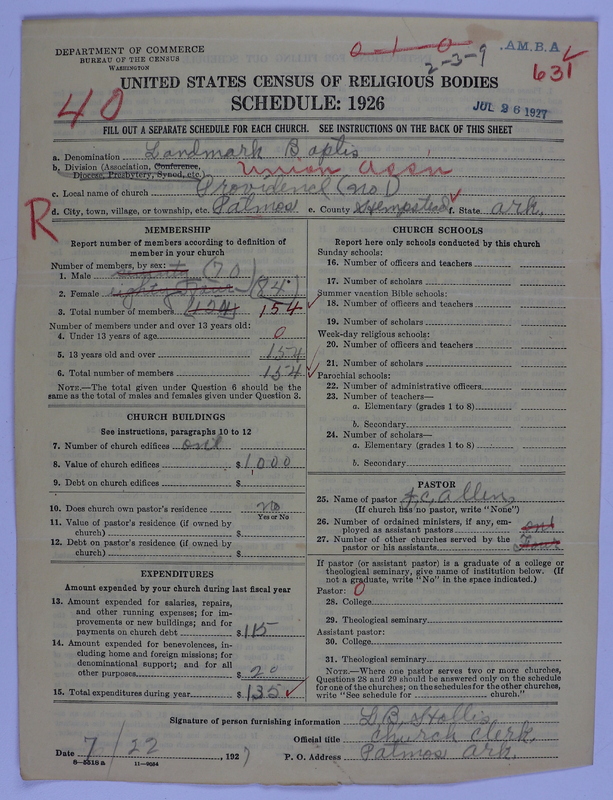 DEPARTMENT OF COMMERCE
BUREAU OF THE CENSUS
WASHINGTON
0-1-0
2-3-9
.AM.B.A
631
40
UNITED STATES CENSUS OF RELIGIOUS BODIES
SCHEDULE: 1926
JUL 26 1927
FILL OUT A SEPARATE SCHEDULE FOR EACH CHURCH. SEE INSTRUCTIONS ON THE BACK OF THIS SHEET
a. Denomination Landmark Baptis
b. Division (Association, Conference, Diocese, Presbytery, Synod, etc.) Union Ass'n
c. Local name of church Providence (no 1)
R
d. City, town, village, or township, etc. Patmos e. County Hempstead f. State Ark.
MEMBERSHIP
Report number of members according to definition of member in your church
Number of members, by sex:
1. Male (70)
2. Female (84)
3. Total number of members (104) 154
Number of members under and over 13 years old:
4. Under 13 years of age 0
5. 13 years old and over 154
6. Total number of members 154
NOTE.—The total given under Question 6 should be the same as the total of males and females given under Question 3.
CHURCH BUILDINGS
See instructions, paragraphs 10 to 12
7. Number of church edifices one
8. Value of church edifices $1,000
9. Debt on church edifices $
10. Does church own pastor's residence no
Yes or No
11. Value of pastor's residence (if owned by church) $
12. Debt on pastor's residence (if owned by church) $
EXPENDITURES
Amount expended by your church during last fiscal year
13. Amount expended for salaries, repairs, and other running expenses; for improvements or new buildings; and for payments on church debt $115
14. Amount expended for benevolences, including home and foreign missions; for denominational support; and for all other purposes $20
15. Total expenditures during year $135
CHURCH SCHOOLS
Report here only schools conducted by this church
Sunday schools:
16. Number of officers and teachers
17. Number of scholars
Summer vacation Bible schools:
18. Number of officers and teachers
19. Number of scholars
Week-day religious schools:
20. Number of officers and teachers
21. Number of scholars
Parochial schools:
22. Number of administrative officers
23. Number of teachers—
a. Elementary (grades 1 to 8)
b. Secondary
24. Number of scholars—
a. Elementary (grades 1 to 8)
b. Secondary
PASTOR
25. Name of pastor J, C, Allen
(If church has no pastor, write "None")
26. Number of ordained ministers, if any, employed as assistant pastors one
27. Number of other churches served by the pastor or his assistants Four
If pastor (or assistant pastor) is a graduate of a college or theological seminary, give name of institution below. (If not a graduate, write "No" in the space indicated.)
Pastor: 0
28. College
29. Theological seminary
Assistant pastor:
30. College
31. Theological seminary
NOTE.—Where one pastor serves two or more churches, Questions 28 and 29 should be answered only on the schedule for one of the churches; on the schedules for the other churches, write "See schedule for church."
Signature of person furnishing information L. B. Hollis
Official title Church Clerk.
Date 7/22, 1927 P. O. Address Patmos Ark.
8-5518 a 11-9084